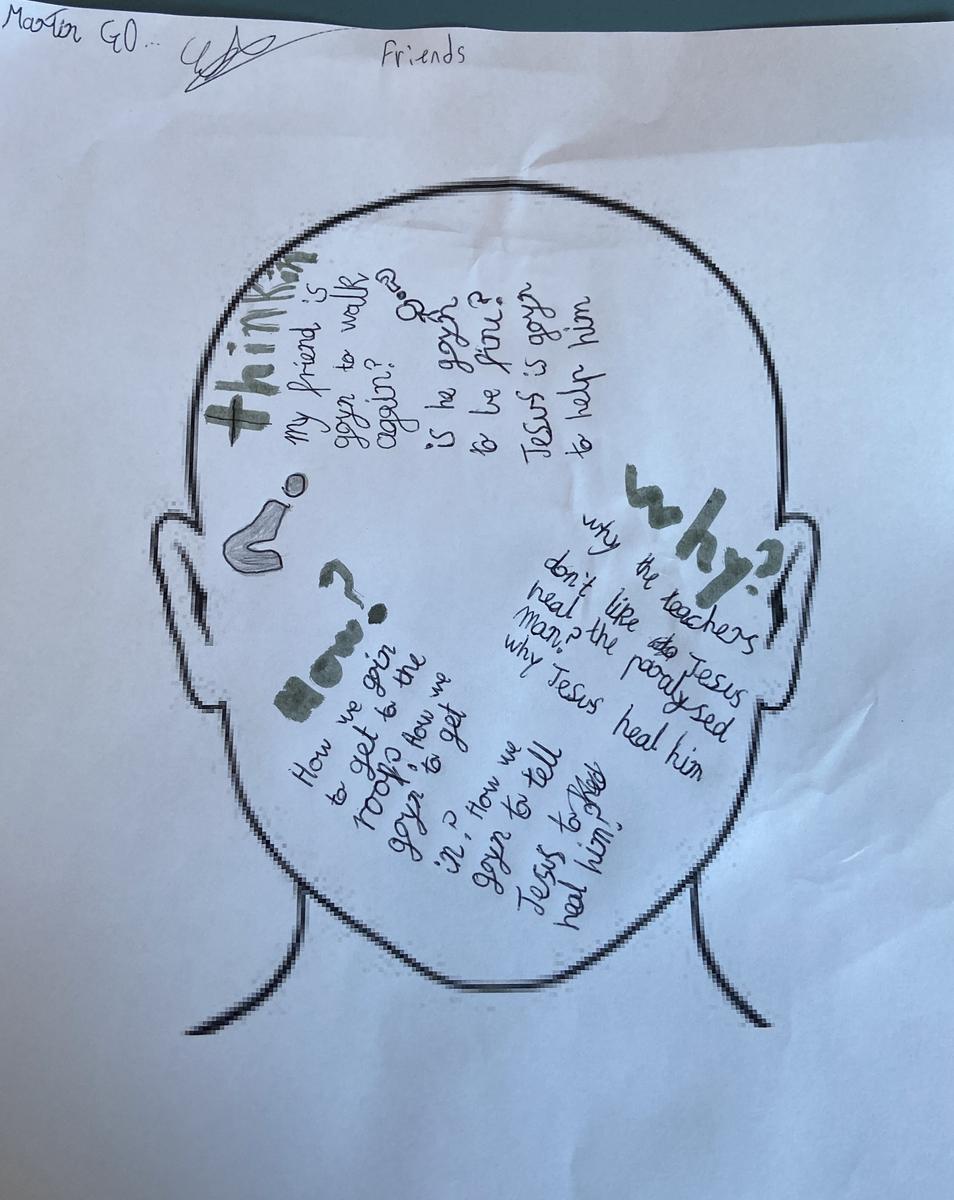 Martin GO...
Friends
thinkin
My friend is
goyn to walk
again?
is he goyn
to be fine?
Jesus is goyn
to help him
why?
why the teachers
don't like Jesus
heal the paralysed
man?
why Jesus heal him
How?
How we goin
to get to the
roof? How we
goyn to get
in? How we
goyn to tell
Jesus to
heal him?